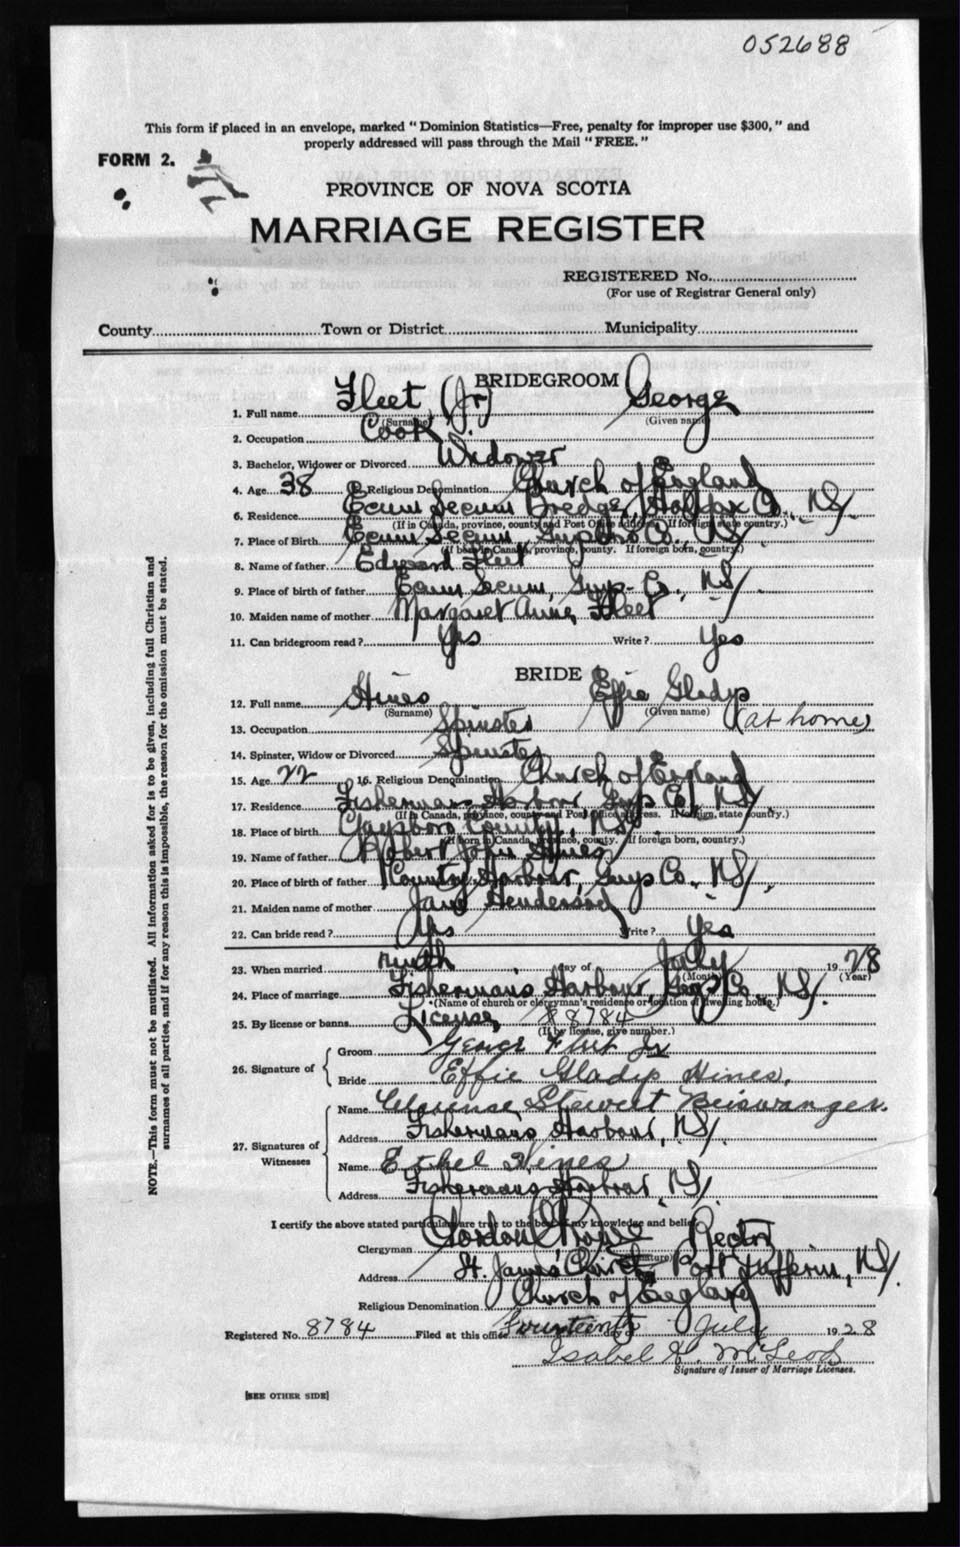 052688
This form if placed in an envelope, marked "Dominion Statistics—Free, penalty for improper use $300," and
properly addressed will pass through the Mail "FREE."
FORM 2.
PROVINCE OF NOVA SCOTIA
MARRIAGE REGISTER
REGISTERED No.
(For use of Registrar General only)
County Town or District Municipality
BRIDEGROOM
1. Full name Fleet, (Jr) George
(Surname) (Given name)
2. Occupation Cook
3. Bachelor, Widower or Divorced Widower
4. Age 38 5. Religious Denomination Church of England
6. Residence Ecum Secum Bridge, Halifax Co., N.S.
(If in Canada, province, county and Post Office address. If foreign, state country.)
7. Place of Birth Ecum Secum, Guysboro Co., N.S.
(If born in Canada, province, county. If foreign born, country.)
8. Name of father Edward Fleet
9. Place of birth of father Ecum Secum, Guys. Co., N.S.
10. Maiden name of mother Margaret Anne Fleet
11. Can bridegroom read? Yes Write? Yes
BRIDE
12. Full name Hines Effie Gladys
(Surname) (Given name)
13. Occupation Spinster (at home)
14. Spinster, Widow or Divorced Spinster
15. Age 22 16. Religious Denomination Church of England
17. Residence Fisherman's Harbour, Guys Co., N.S.
(If in Canada, province, county and Post Office address. If foreign, state country.)
18. Place of birth Guysboro County, N.S.
(If born in Canada, province, county. If foreign born, country.)
19. Name of father Robert John Hines
20. Place of birth of father Country Harbour, Guys Co., N.S.
21. Maiden name of mother Jane Henderson
22. Can bride read? Yes Write? Yes
23. When married ninth day of July 1928
(Month) (Year)
24. Place of marriage Fisherman's Harbour, Guys Co., N.S.
(Name of church or clergyman's residence or location of dwelling house.)
25. By license or banns License, 8784
(If by license, give number.)
26. Signature of
Groom George Fleet Jr
Bride Effie Gladys Hines.
27. Signatures of Witnesses
Name Clarence Stewert Beiswanger.
Address Fisherman's Harbour, N.S.
Name Ethel Hines
Address Fisherman's Harbour, N.S.
I certify the above stated particulars are true to the best of my knowledge and belief.
Clergyman Gordon Rector
(Signature)
Address St. James' Church Port Dufferin, N.S.
Religious Denomination Church of England
Registered No. 8784 Filed at this office Fourteenth day of July 1928
Isabel H. McLeod
Signature of Issuer of Marriage Licenses.
[SEE OTHER SIDE]
NOTE.—This form must not be mutilated. All information asked for is to be given, including full Christian and
surnames of all parties, and if for any reason this is impossible, the reason for the omission must be stated.